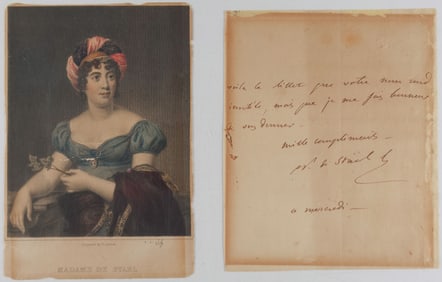 MADAME DE STAEL
voila le billet que votre nom rend
inutile, mais que je me fais honneur
de vous donner
mille compliments
N. de Staël
a mercredi